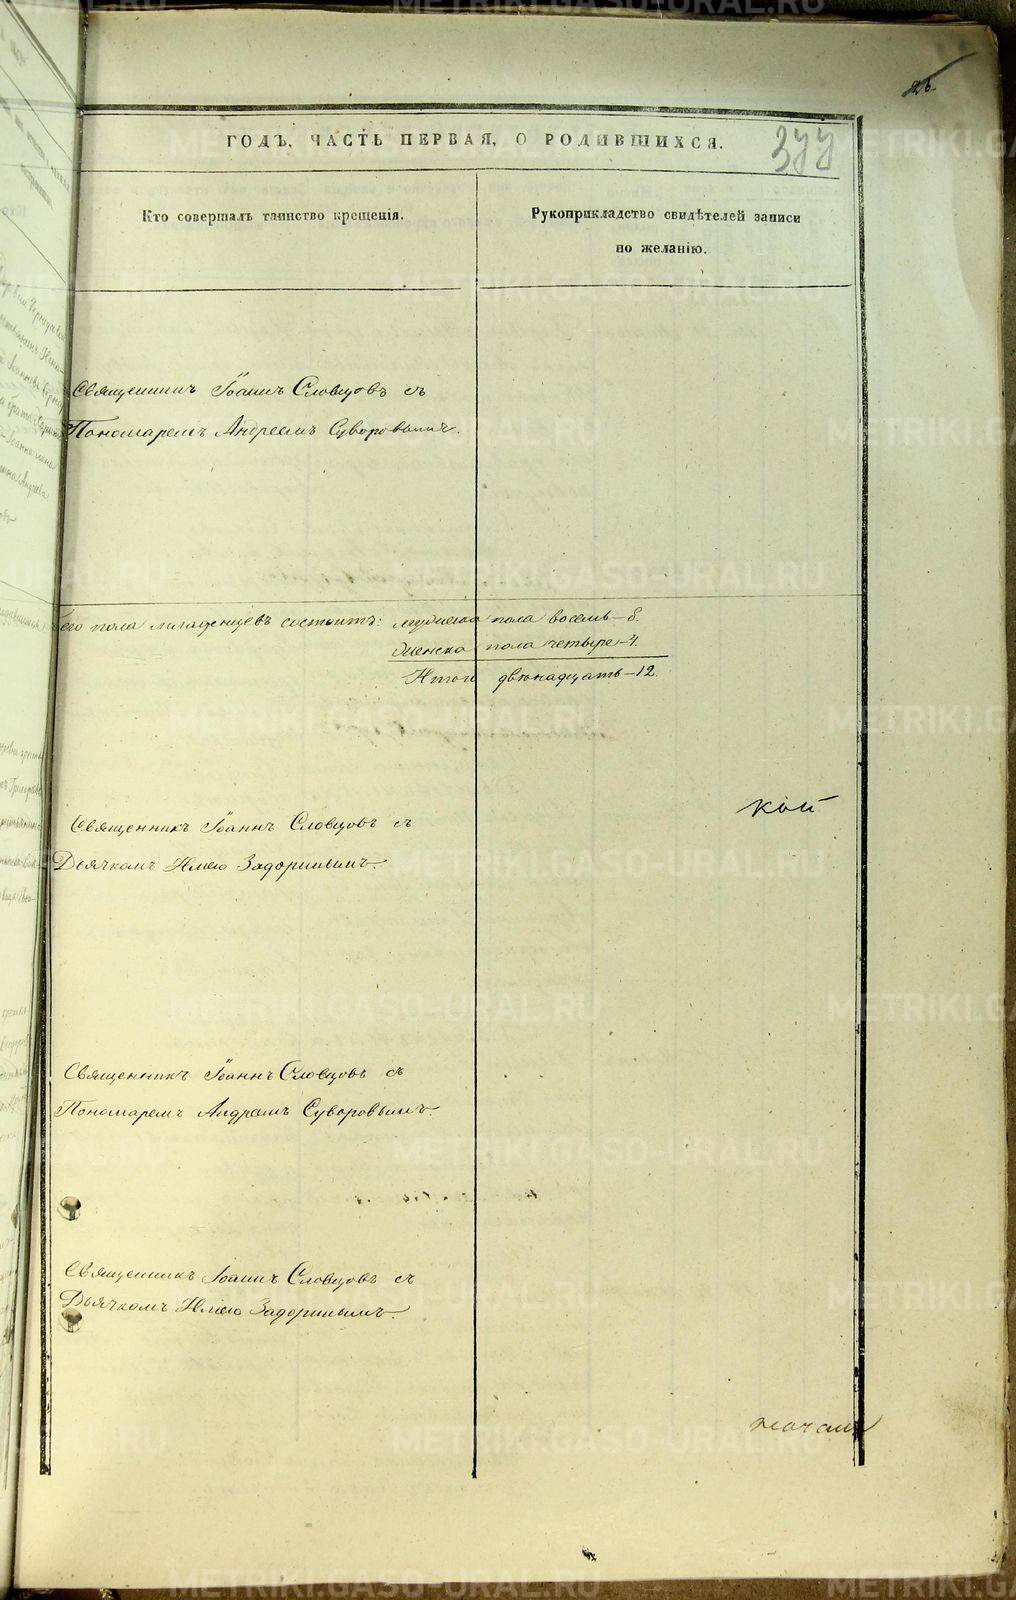 26.
ГОДЪ, ЧАСТЬ ПЕРВАЯ, О РОДИВШИХСЯ.
377
Кто совершалъ таинство крещенія.
Рукоприкладство свидѣтелей записи
по желанію.
Священникъ Іоаннъ Словцовъ съ
Пономаремъ Андреемъ Суворовымъ.
его пола младенцевъ состоитъ: мужеска пола восемь – 8.
женска пола четыре – 4.
Итого двѣнадцать – 12.
кой
Священникъ Іоаннъ Словцовъ съ
Дьячкомъ Иліею Задоринымъ.
Священникъ Іоаннъ Словцовъ съ
Пономаремъ Андреемъ Суворовымъ.
Священникъ Іоаннъ Словцовъ съ
Дьячкомъ Иліею Задоринымъ.
METRIKI.GASO-URAL.RU